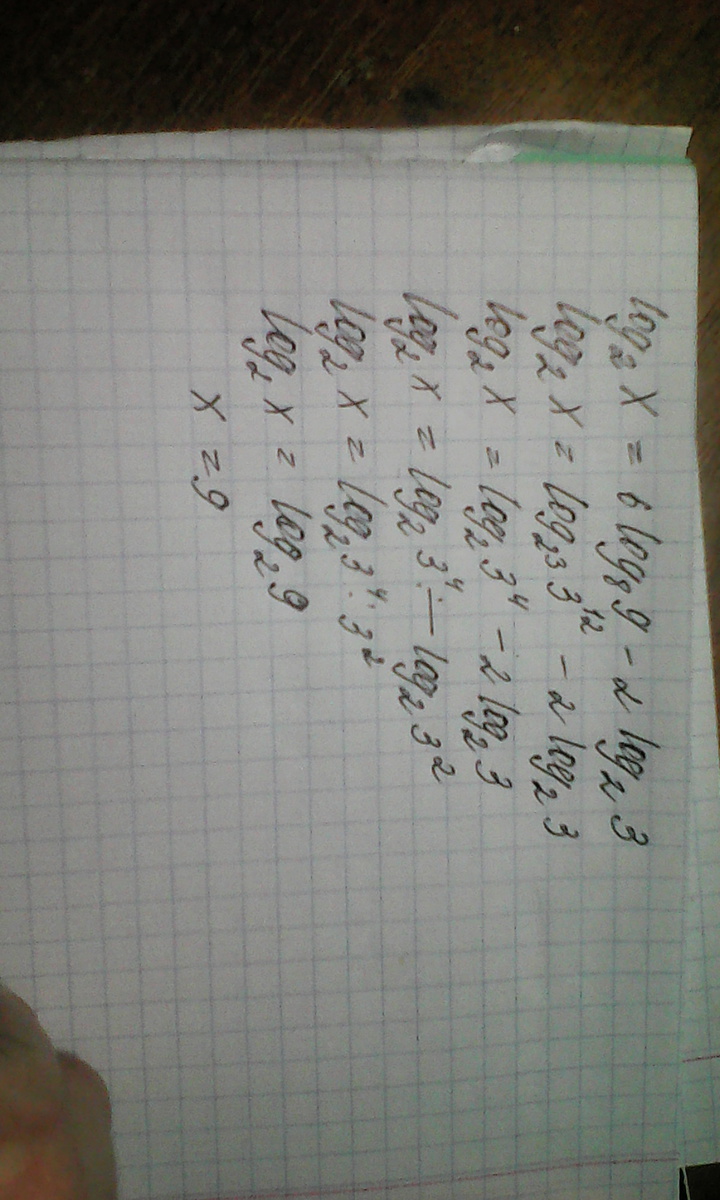 log₂ x = 6 log₈ 9 - 2 log₂ 3
log₂ x = log₂³ 3¹² - 2 log₂ 3
log₂ x = log₂ 3⁴ - 2 log₂ 3
log₂ x = log₂ 3⁴ ÷ log₂ 3²
log₂ x = log₂ 3⁴ : 3²
log₂ x = log₂ 9
x = 9